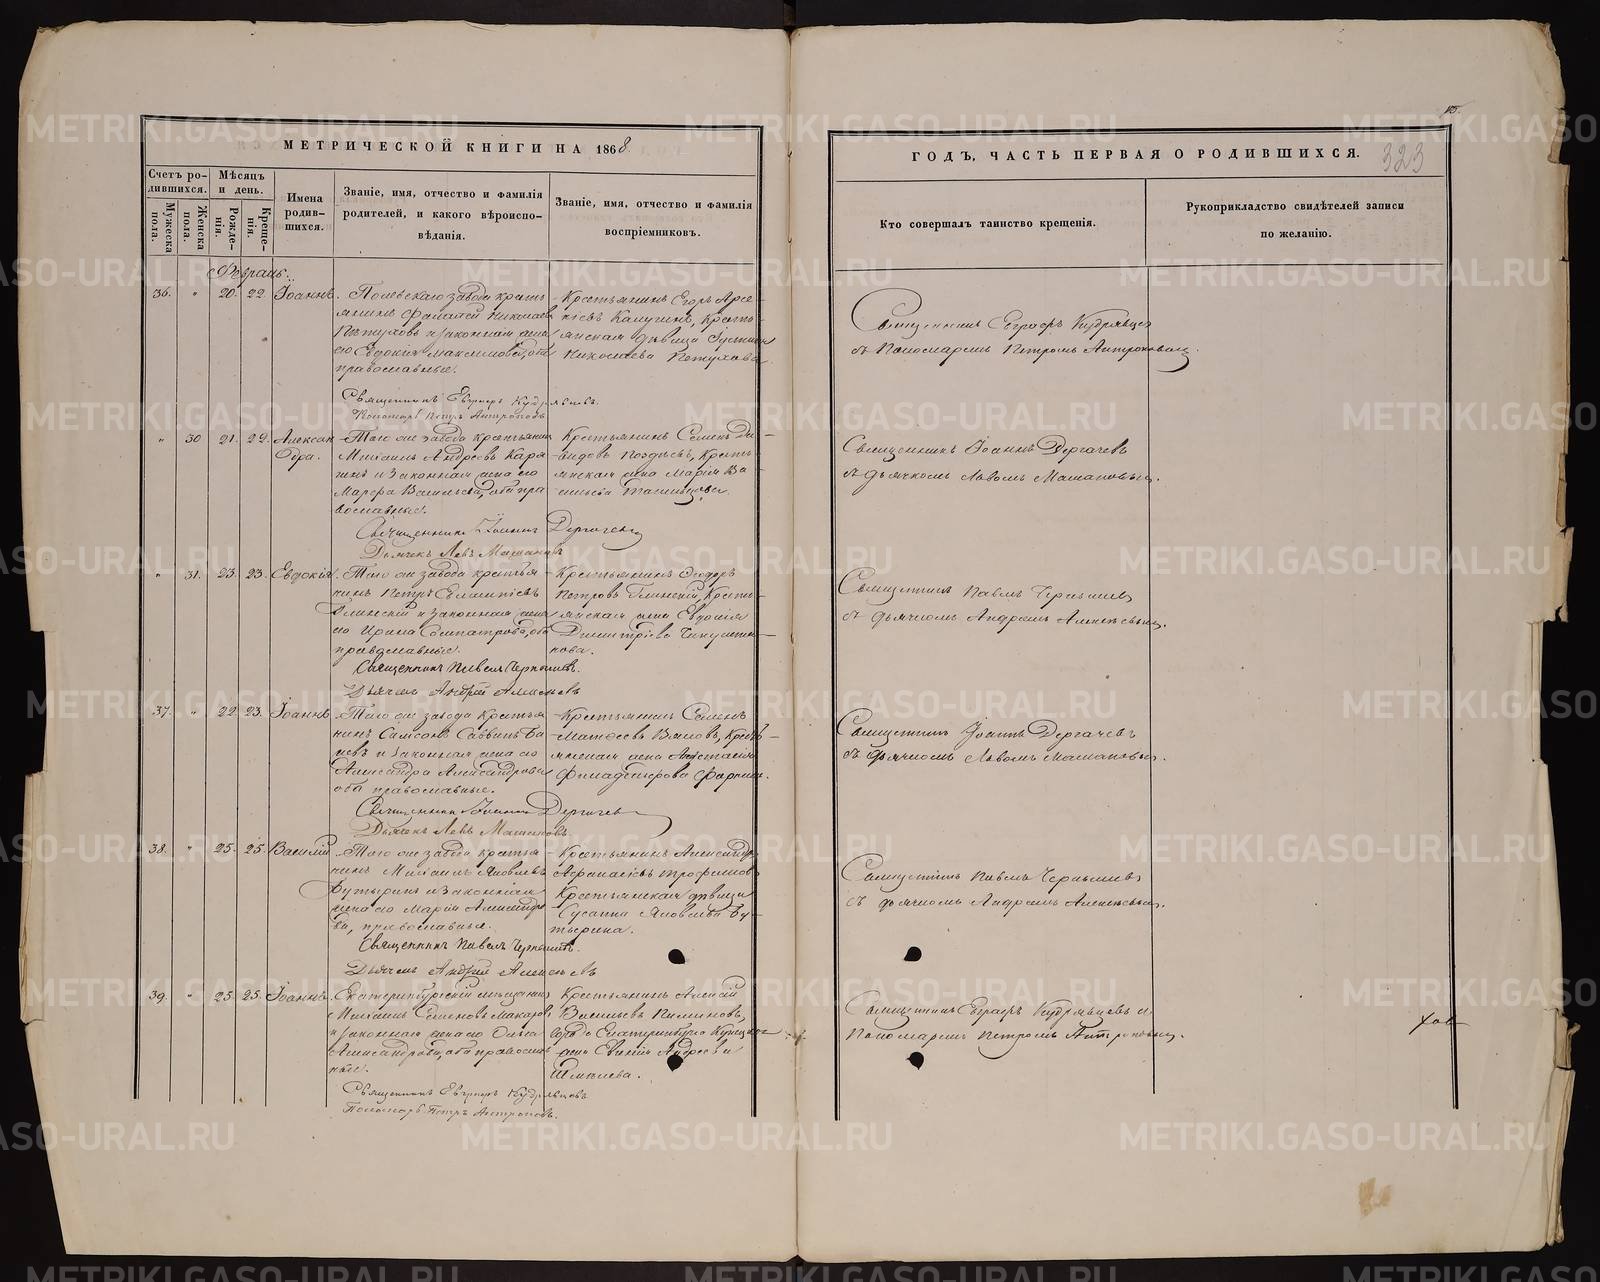 МЕТРИЧЕСКОЙ КНИГИ НА 1868
Счетъ родившихся.
Мужеска пола.
Женска пола.
Мѣсяцъ и день.
Рожденія.
Крещенія.
Имена родившихся.
Званіе, имя, отчество и фамилія родителей, и какого вѣроисповѣданія.
Званіе, имя, отчество и фамилія воспріемниковъ.
Февраль.
36. " 20. 22. Іоаннъ.
Полевскаго завода кресть-
янинъ Николаевъ
Пѣтуховъ и законная жена
его Евдокія Максимова, оба
православные.
Крестьянинъ Егоръ Арсе-
ніевъ Калугинъ, кресть-
янская дѣвица
Николаева Пѣтухова.
Священникъ Евграфъ Кудрявцевъ.
Пономарь Петръ Антроповъ
" 30 21. 22. Александра.
Того же завода крестьянинъ
Михаилъ Андреевъ
и законная жена его
Марѳа Васильева, оба пра-
вославные.
Крестьянинъ Семенъ Да-
видовъ кресть-
янская жена Марія Ва-
сильева
Священникъ Іоаннъ Дергачевъ
Дьячекъ Левъ Машановъ
" 31. 23. 23. Евдокія.
Того же завода крестья-
нинъ Петръ
Глинскій и законная жена
его Ирина оба
православные.
Крестьянинъ Ѳеодоръ
Петровъ Глинскій, кресть-
янская жена Евдокія
Димитріева
Священникъ Павелъ Чернышевъ.
Дьячекъ Андрей Алексѣевъ
37. " 22 23. Іоаннъ.
Того же завода крестья-
нинъ Самсонъ Саввинъ Ба-
евъ и законная жена его
Александра Александрова
оба православные.
Крестьянинъ Семенъ
Матѳеевъ кресть-
янская жена Анастасія
Священникъ Іоаннъ Дергачевъ
Дьячекъ Левъ Машановъ
38. " 25. 25. Василій
Того же завода крестья-
нинъ Михаилъ Яковлевъ
Бутыринъ и законная
жена его Марія Александро-
ва, православные.
Крестьянинъ Александръ
Аѳанасіевъ Трофимовъ
Крестьянская дѣвица
Сусанна Яковлева Бу-
тырина.
Священникъ Павелъ Чернышевъ.
Дьячекъ Андрей Алексѣевъ
39. " 25. 25. Іоаннъ.
Екатеринбургскій мѣщанинъ
Михаилъ Семеновъ Макаровъ
и законная жена его Ольга
Александрова, оба православ-
ные.
Крестьянинъ Алексѣй
Васильевъ
города Екатеринбурга
жена Евгенія Андреева
Шмелева.
Священникъ Евграфъ Кудрявцовъ
Пономарь Петръ Антроповъ.
ГОДЪ, ЧАСТЬ ПЕРВАЯ О РОДИВШИХСЯ.
323
Кто совершалъ таинство крещенія.
Рукоприкладство свидѣтелей записи
по желанію.
Священникъ Евграфъ Кудрявцевъ
съ Пономаремъ Петромъ Антроповымъ.
Священникъ Іоаннъ Дергачевъ
съ дьячкомъ Львомъ Машановымъ.
Священникъ Павелъ Чернышевъ
съ дьячкомъ Андреемъ Алексѣевымъ.
Священникъ Іоаннъ Дергачевъ
съ дьячкомъ Львомъ Машановымъ.
Священникъ Павелъ Чернышевъ
съ дьячкомъ Андреемъ Алексѣевымъ.
Священникъ Евграфъ Кудрявцевъ съ
Пономаремъ Петромъ Антроповымъ.
METRIKI.GASO-URAL.RU